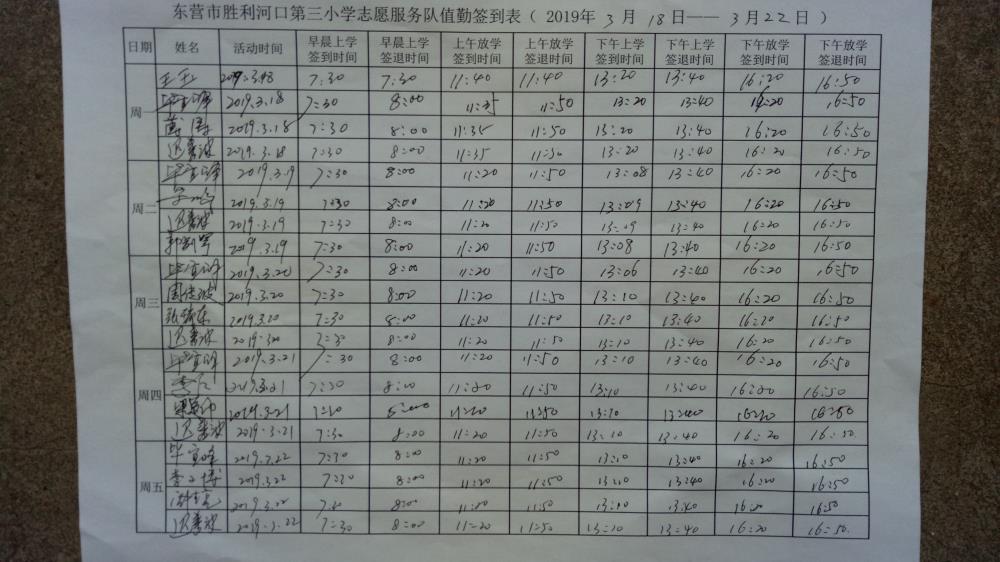 东营市胜利河口第三小学志愿服务队值勤签到表（2019年 3 月 18 日—— 3 月 22 日）
日期 姓名 活动时间 早晨上学签到时间 早晨上学签退时间 上午放学签到时间 上午放学签退时间 下午上学签到时间 下午上学签退时间 下午放学签到时间 下午放学签退时间
周一 2019.3.18 7:30 7:30 11:40 11:40 13:20 13:40 16:20 16:50
2019.3.18 7:30 8:00 11:35 11:50 13:20 13:40 16:20 16:50
2019.3.18 7:30 8:00 11:35 11:50 13:20 13:40 16:20 16:50
2019.3.18 7:30 8:00 11:35 11:50 13:20 13:40 16:20 16:50
周二 2019.3.19 7:30 8:00 11:20 11:50 13:08 13:40 16:20 16:50
2019.3.19 7:30 8:00 11:20 11:50 13:09 13:40 16:20 16:50
2019.3.19 7:30 8:00 11:20 11:50 13:09 13:40 16:20 16:50
2019.3.19 7:30 8:00 11:20 11:50 13:08 13:40 16:20 16:50
周三 2019.3.20 7:30 8:00 11:20 11:50 13:06 13:40 16:20 16:50
2019.3.20 7:30 8:00 11:20 11:50 13:10 13:40 16:20 16:50
2019.3.20 7:30 8:00 11:20 11:50 13:10 13:40 16:20 16:50
7:30 8:00 11:20 11:50 13:10 13:40 16:20 16:50
周四 2019.3.21 7:30 8:00 11:20 11:50 13:10 13:40 16:20 16:50
2019.3.21 7:30 8:00 11:20 11:50 13:10 13:40 16:20 16:50
2019.3.21 11:50 13:10 13:40 16:50
2019.3.21 7:30 8:00 11:20 11:50 13:10 13:40 16:20 16:50
周五 2019.3.22 7:30 8:00 11:20 11:50 13:10 13:40 16:20 16:50
李 博 2019.3.22 7:30 8:00 11:20 11:50 13:10 13:40 16:20 16:50
2019.3.22 7:30 8:00 11:50 13:10 13:40 16:20 16:50
2019.3.22 7:30 8:00 11:20 11:50 13:10 13:40 16:20 16:50